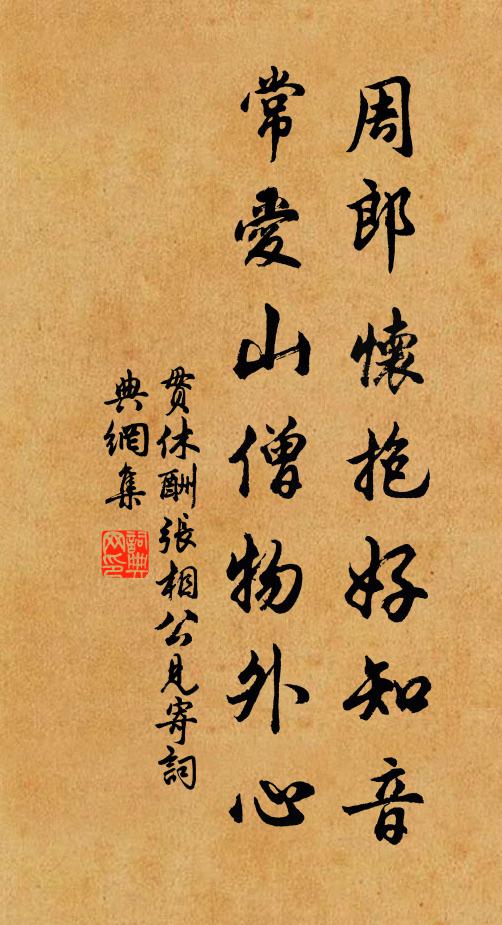 周郎懷抱好知音
常愛山僧物外心
貫休酬張相公見寄詞
典網集
詞典網印